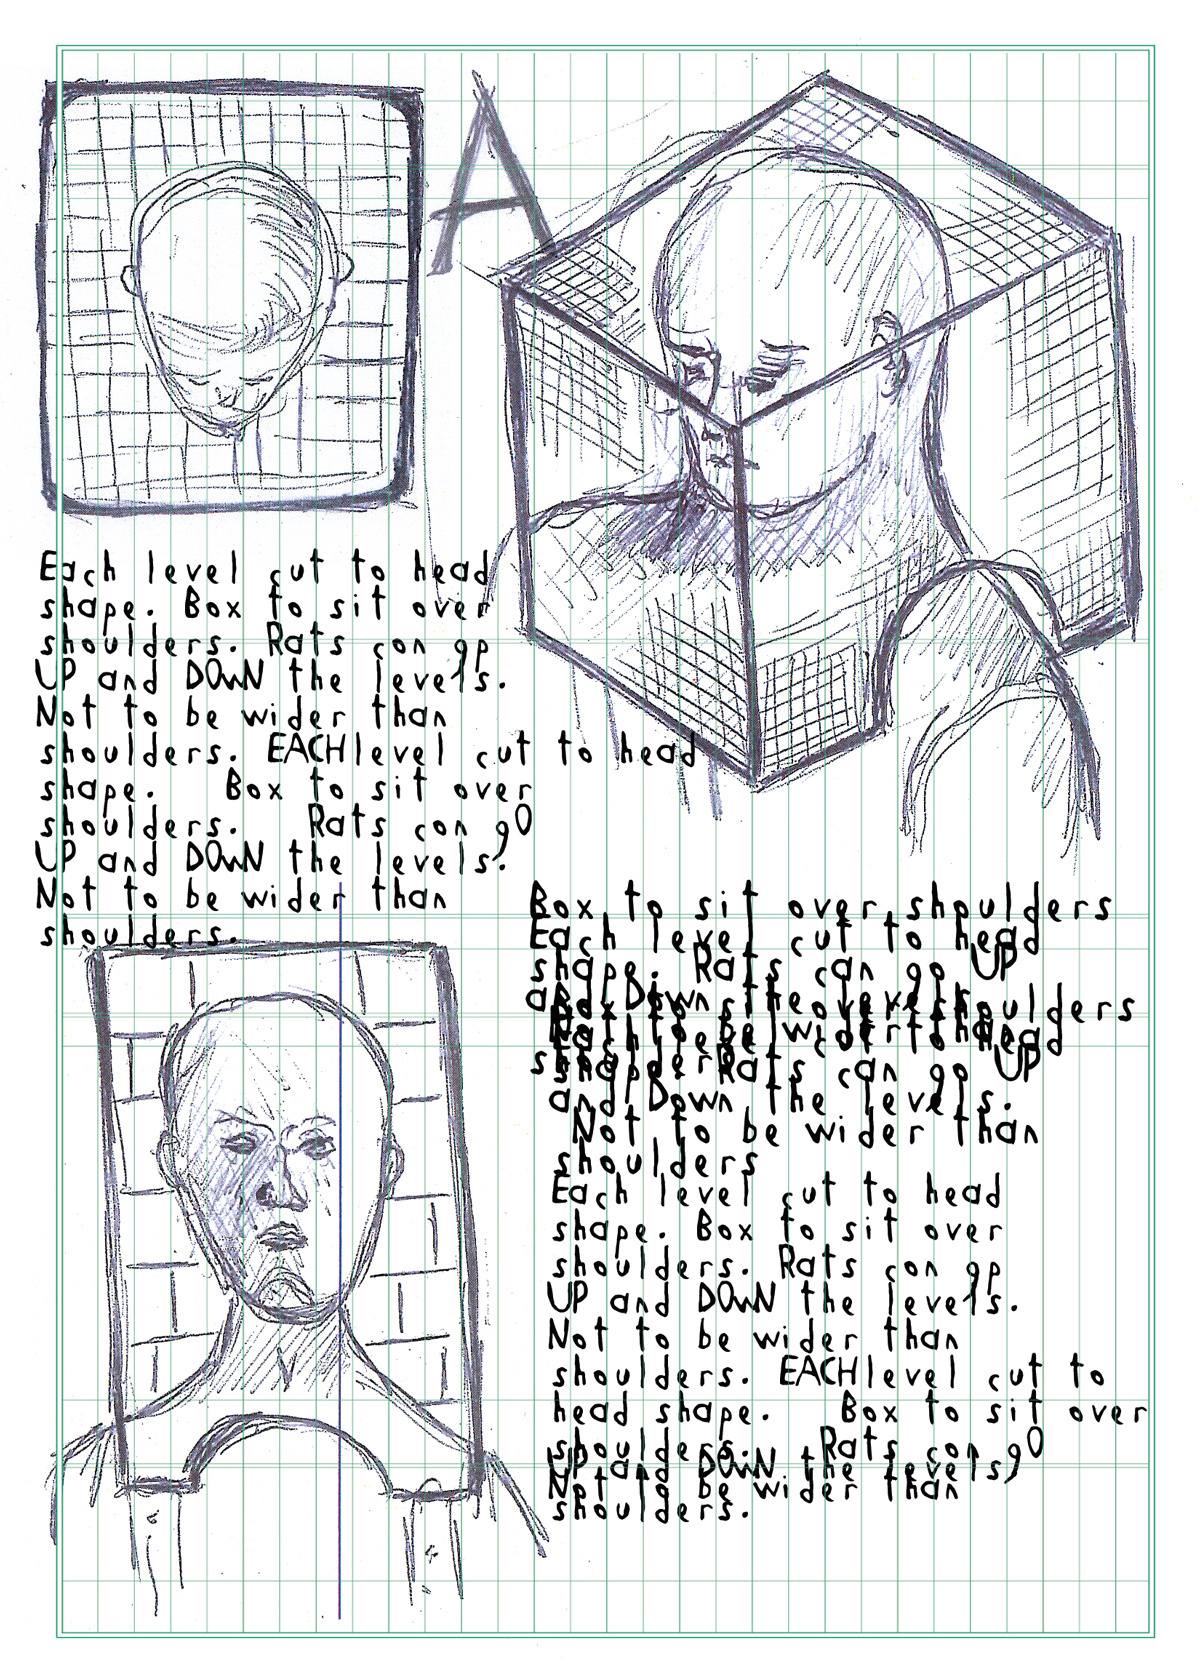 A
Each level cut to head
shape. Box to sit over
shoulders. Rats con go
UP and DOwN the levels.
Not to be wider than
shoulders. EACH level cut to head
shape. Box to sit over
shoulders. Rats con gO
UP and DOwN the levels.
Not to be wider than
shoulders.
Box to sit over shoulders
Each level cut to head
shape. Rats can go UP
and Down the levels.
shoulders
Not to be wider than
head
shoulders Rats can go UP
and Down the levels.
Not to be wider than
shoulders
Each level cut to head
shape. Box to sit over
shoulders. Rats con go
UP and DOwN the levels.
Not to be wider than
shoulders. EACH level cut to
head shape. Box to sit over
shoulders. Rats con gO
UP and DOwN the levels.
Not to be wider than
shoulders.